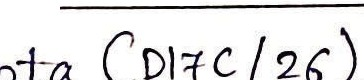 ota (D17C/26)